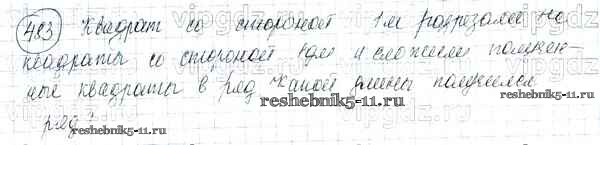 483 Квадрат со стороной 1м разрезали на
квадраты со стороной 1дм и сложили получен-
ные квадраты в ряд. Какой длины получился
reshebnik5-11.ru
ряд?
reshebnik5-11.ru
vipgdz.ru